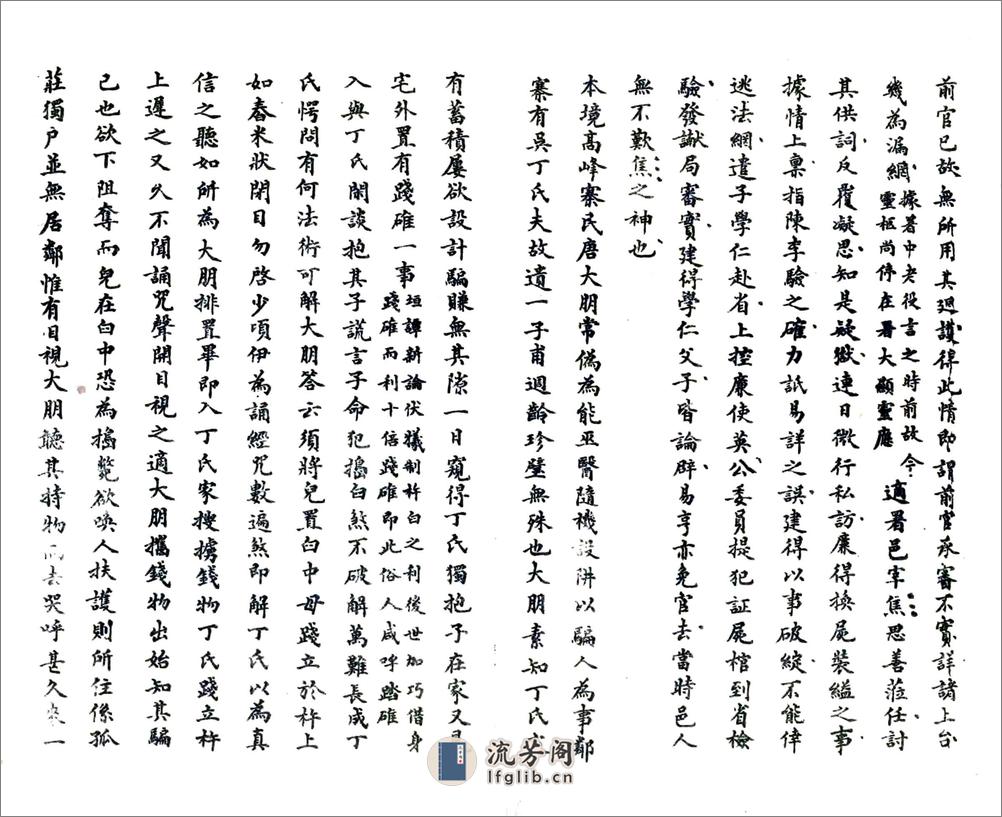 前官已故無所用其迴護得此情即謂前官承審不實詳諸上台
幾為漏網據著中老役言之時前故令靈柩尚停在署大顯靈應適署邑宰焦思善蒞任討
其供詞反覆凝思知是疑獄連日微行私訪廉得換屍裝縊之事
據情上稟指陳李驗之確力詆易詳之誤建得以事破綻不能倖
逃法網遣子學仁赴省上控廉使英公委員提犯証屍棺到省檢
驗發讞局審實建得學仁父子皆論辟易亨亦免官去當時邑人
無不歎焦之神也
本境高峰寨民唐大朋常偽為能巫醫隨機設阱以騙人為事鄰
寨有吳丁氏夫故遺一子甫週齡珍璧無殊也大朋素知丁氏
有蓄積屢欲設計騙賺無其隙一日窺得丁氏獨抱子在家又
宅外置有踐碓一事垣譚新論伏羲制杵臼之利後世加巧借身踐碓而利十倍踐碓即此俗人咸呼踏碓
入與丁氏閑談抱其子謊言子命犯搗臼煞不破解萬難長成丁
氏愕問有何法術可解大朋答云須將兒置臼中母踐立於杵上
如舂米狀閉目勿啓少項伊為誦經咒數遍煞即解丁氏以為真
信之聽如所為大朋排置畢即入丁氏家搜擄錢物丁氏踐立杵
上遲之又久不聞誦咒聲開目視之適大朋攜錢物出始知其騙
己也欲下阻奪而兒在臼中恐為搗斃欲喚人扶護則所住係孤
莊獨戶並無居鄰惟有目視大朋聽其持物而去哭呼甚久來一
流芳阁
lfglib.cn